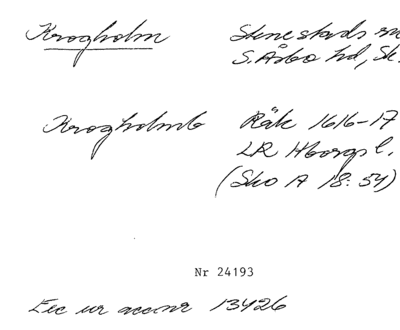 Krogholm Stenestads sn
S. Åsbo hd, Sk.
Krogholmb Räk 1616-17
LR Hborgs l.
(Sko A 18:54)
Nr 24193
Exc ur accnr 13426